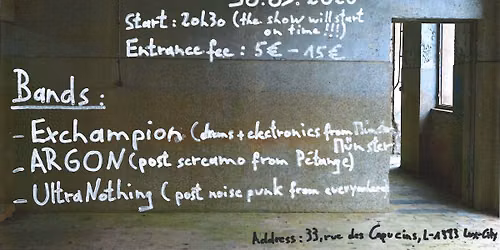 Start: 20h30 (the show will start
on time!!!)
Entrance fee: 5€ - 15€
Bands:
- Exchampion (drums + electronics from Münster
Münster
- ARGON (post screamo from Pétange)
- Ultra Nothing (post noise punk from everywhere)
Address: 33, rue des Capucins, L-1313 Lux-City